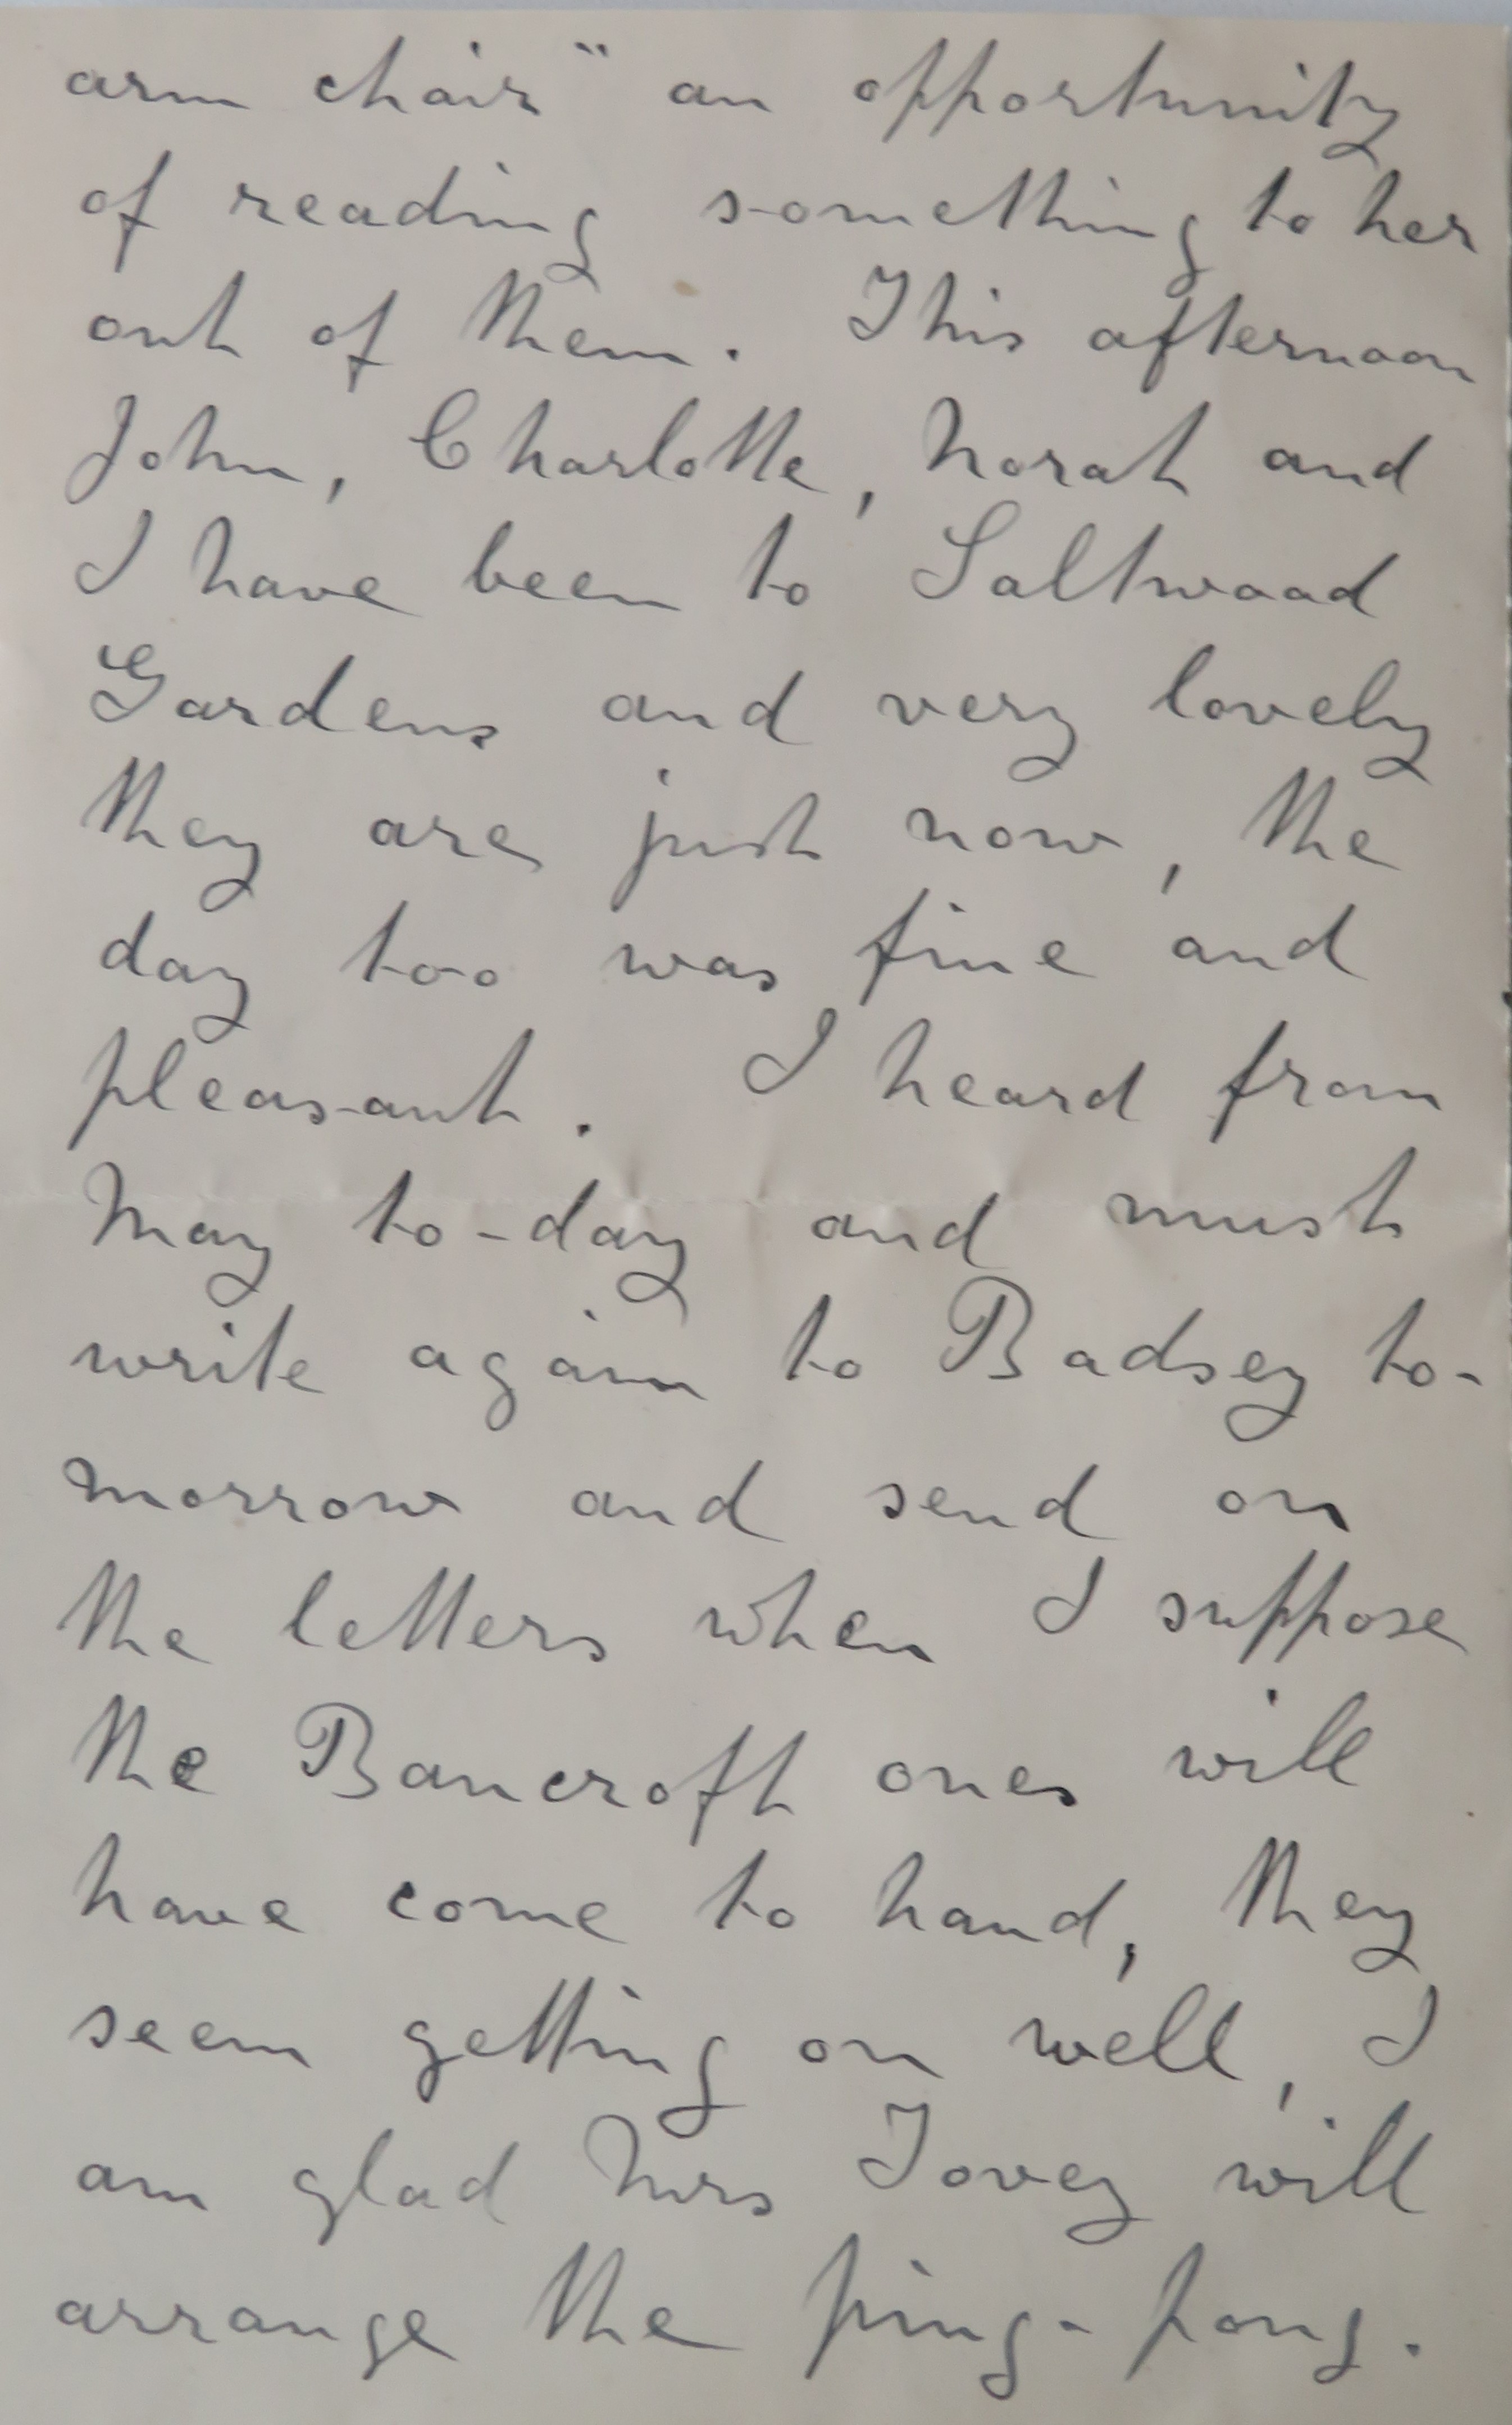 arm chair" an opportunity
of reading something to her
out of them. This afternoon
John, Charlotte, Norah and
I have been to Saltwood
Gardens and very lovely
they are just now, the
day too was fine and
pleasant. I heard from
May to-day and must
write again to Badsey to-
morrow and send on
the letters when I suppose
the Bancroft ones will
have come to hand, they
seem getting on well, I
am glad Mrs Tovey will
arrange the ping-pong.